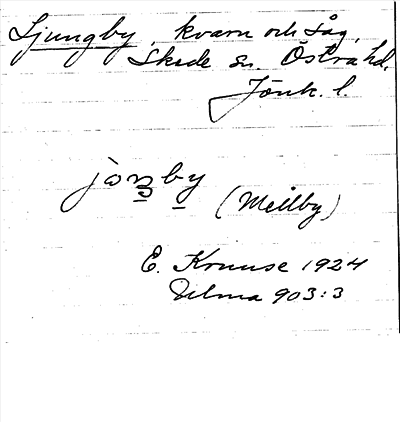 Ljungby, kvarn och såg,
Skede sn. Östra hd.
Jönk. l.
jònby
(Mellby)
E. Kruuse 1924
Vilma 903:3